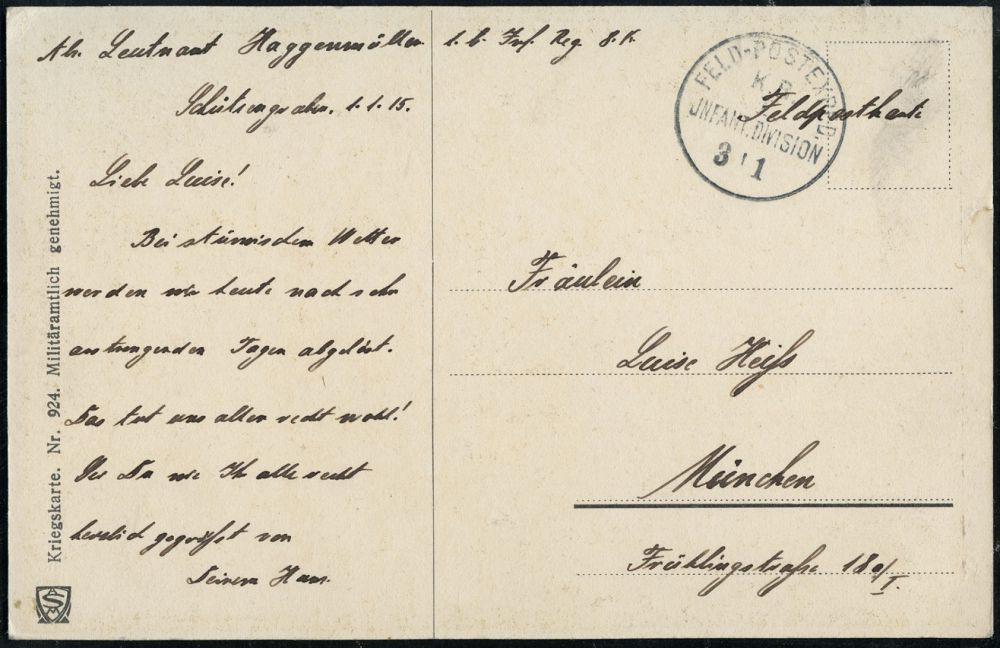 Abs. Leutnant Haggenmüller 1. b. Inf. Reg. 8. K.
Schützengraben, 1.1.15.
Liebe Luise!
Bei stürmischem Wetter
werden wir heute nach sehr
anstrengenden Tagen abgelöst.
Das tut uns allen recht wohl!
Sei Du wie Ihr alle recht
herzlich gegrüßt von
Deinem Hans.
Kriegskarte. Nr. 924. Militäramtlich genehmigt.
FELD-POSTEXPED.
K.B.
INFANT. DIVISION
3 1
Feldpostkarte
Fräulein
Luise Heiß
München
Frühlingstraße 18a/I.